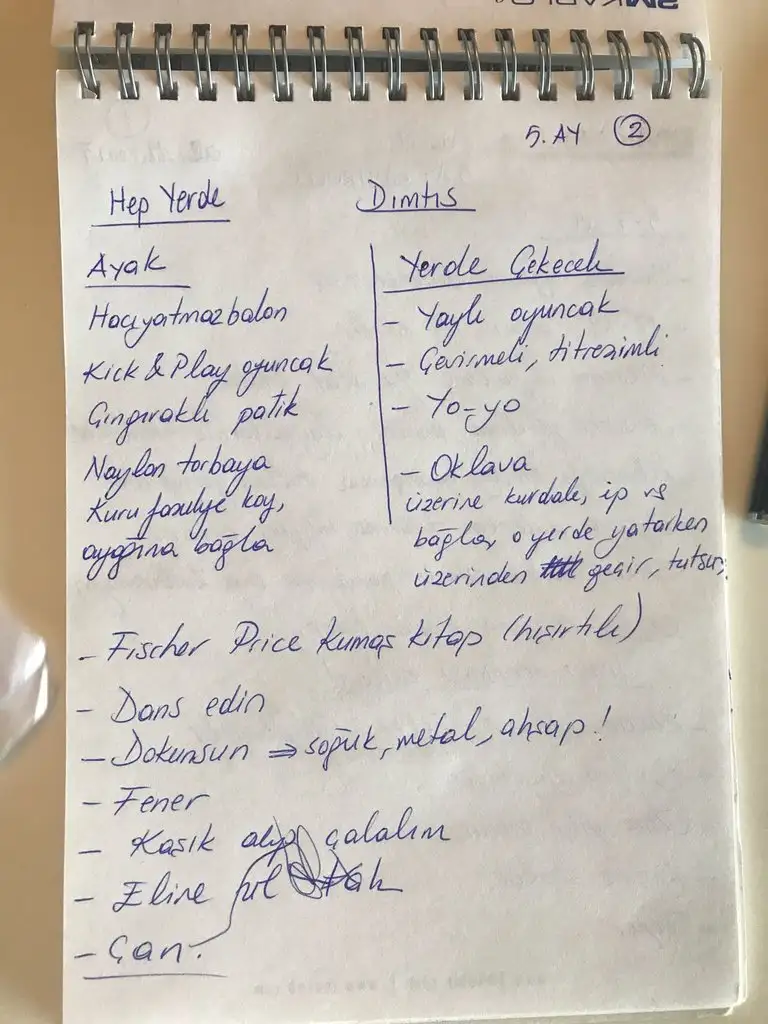 5. AY 2
Hep Yerde
Dımtıs
Ayak
Hacıyatmaz balon
Kick & Play oyuncak
Çıngıraklı patik
Naylon torbaya
Kuru fasulye koy,
ayağına bağla
Yerde Çekecek
- Yaylı oyuncak
- Çevirmeli, titreşimli
- Yo-yo
- Oklava
üzerine kurdale, ip vs
bağla, o yerde yatarken
üzerinden geçir, tutsun
- Fischer Price Kumaş kitap (hışırtılı)
- Dans edin
- Dokunsun ⇒ soğuk, metal, ahşap!
- Fener
- Kaşık alıp çalalım
- Eline pil
- Çan.